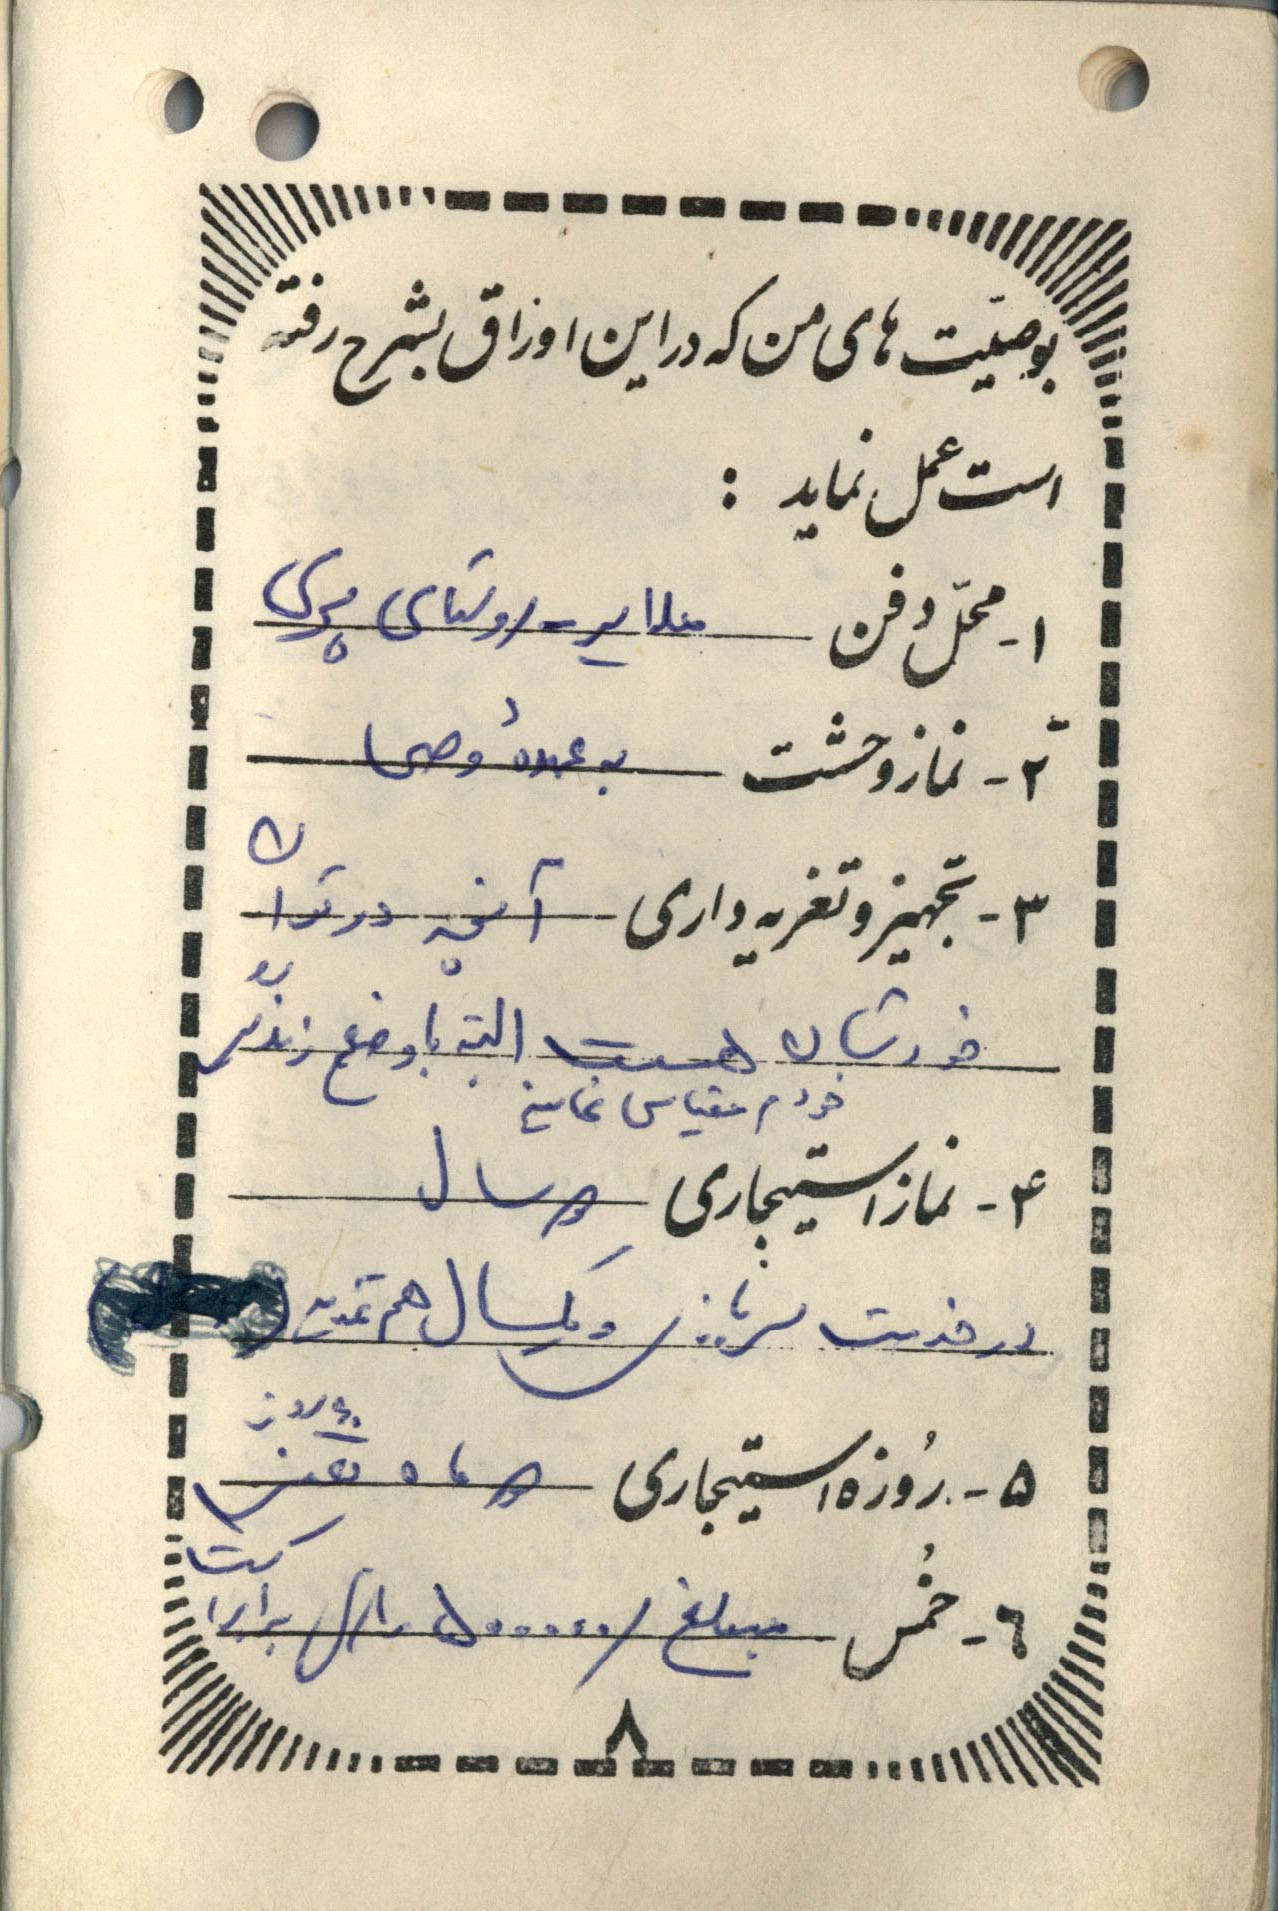 بوصیّت های من که در این اوراق بشرح رفته
است عمل نماید :
۱- محّل دفن ملایر - روستای پری
۲- نماز وحشت به عهدهٔ وصی
۳- تجهیز و تعزیه داری آنچه در توان
خودشان هست البته با وضع زندگی
خودم مقیاس نمایند
۴- نماز استیجاری دو سال
در خدمت سربازی و یکسال هم
۵- رُوزه استیجاری دو ماه یعنی
۶۰ روز
۶- خُمس مبلغ /۵۰۰۰۰۰ ریال برابر است
۸